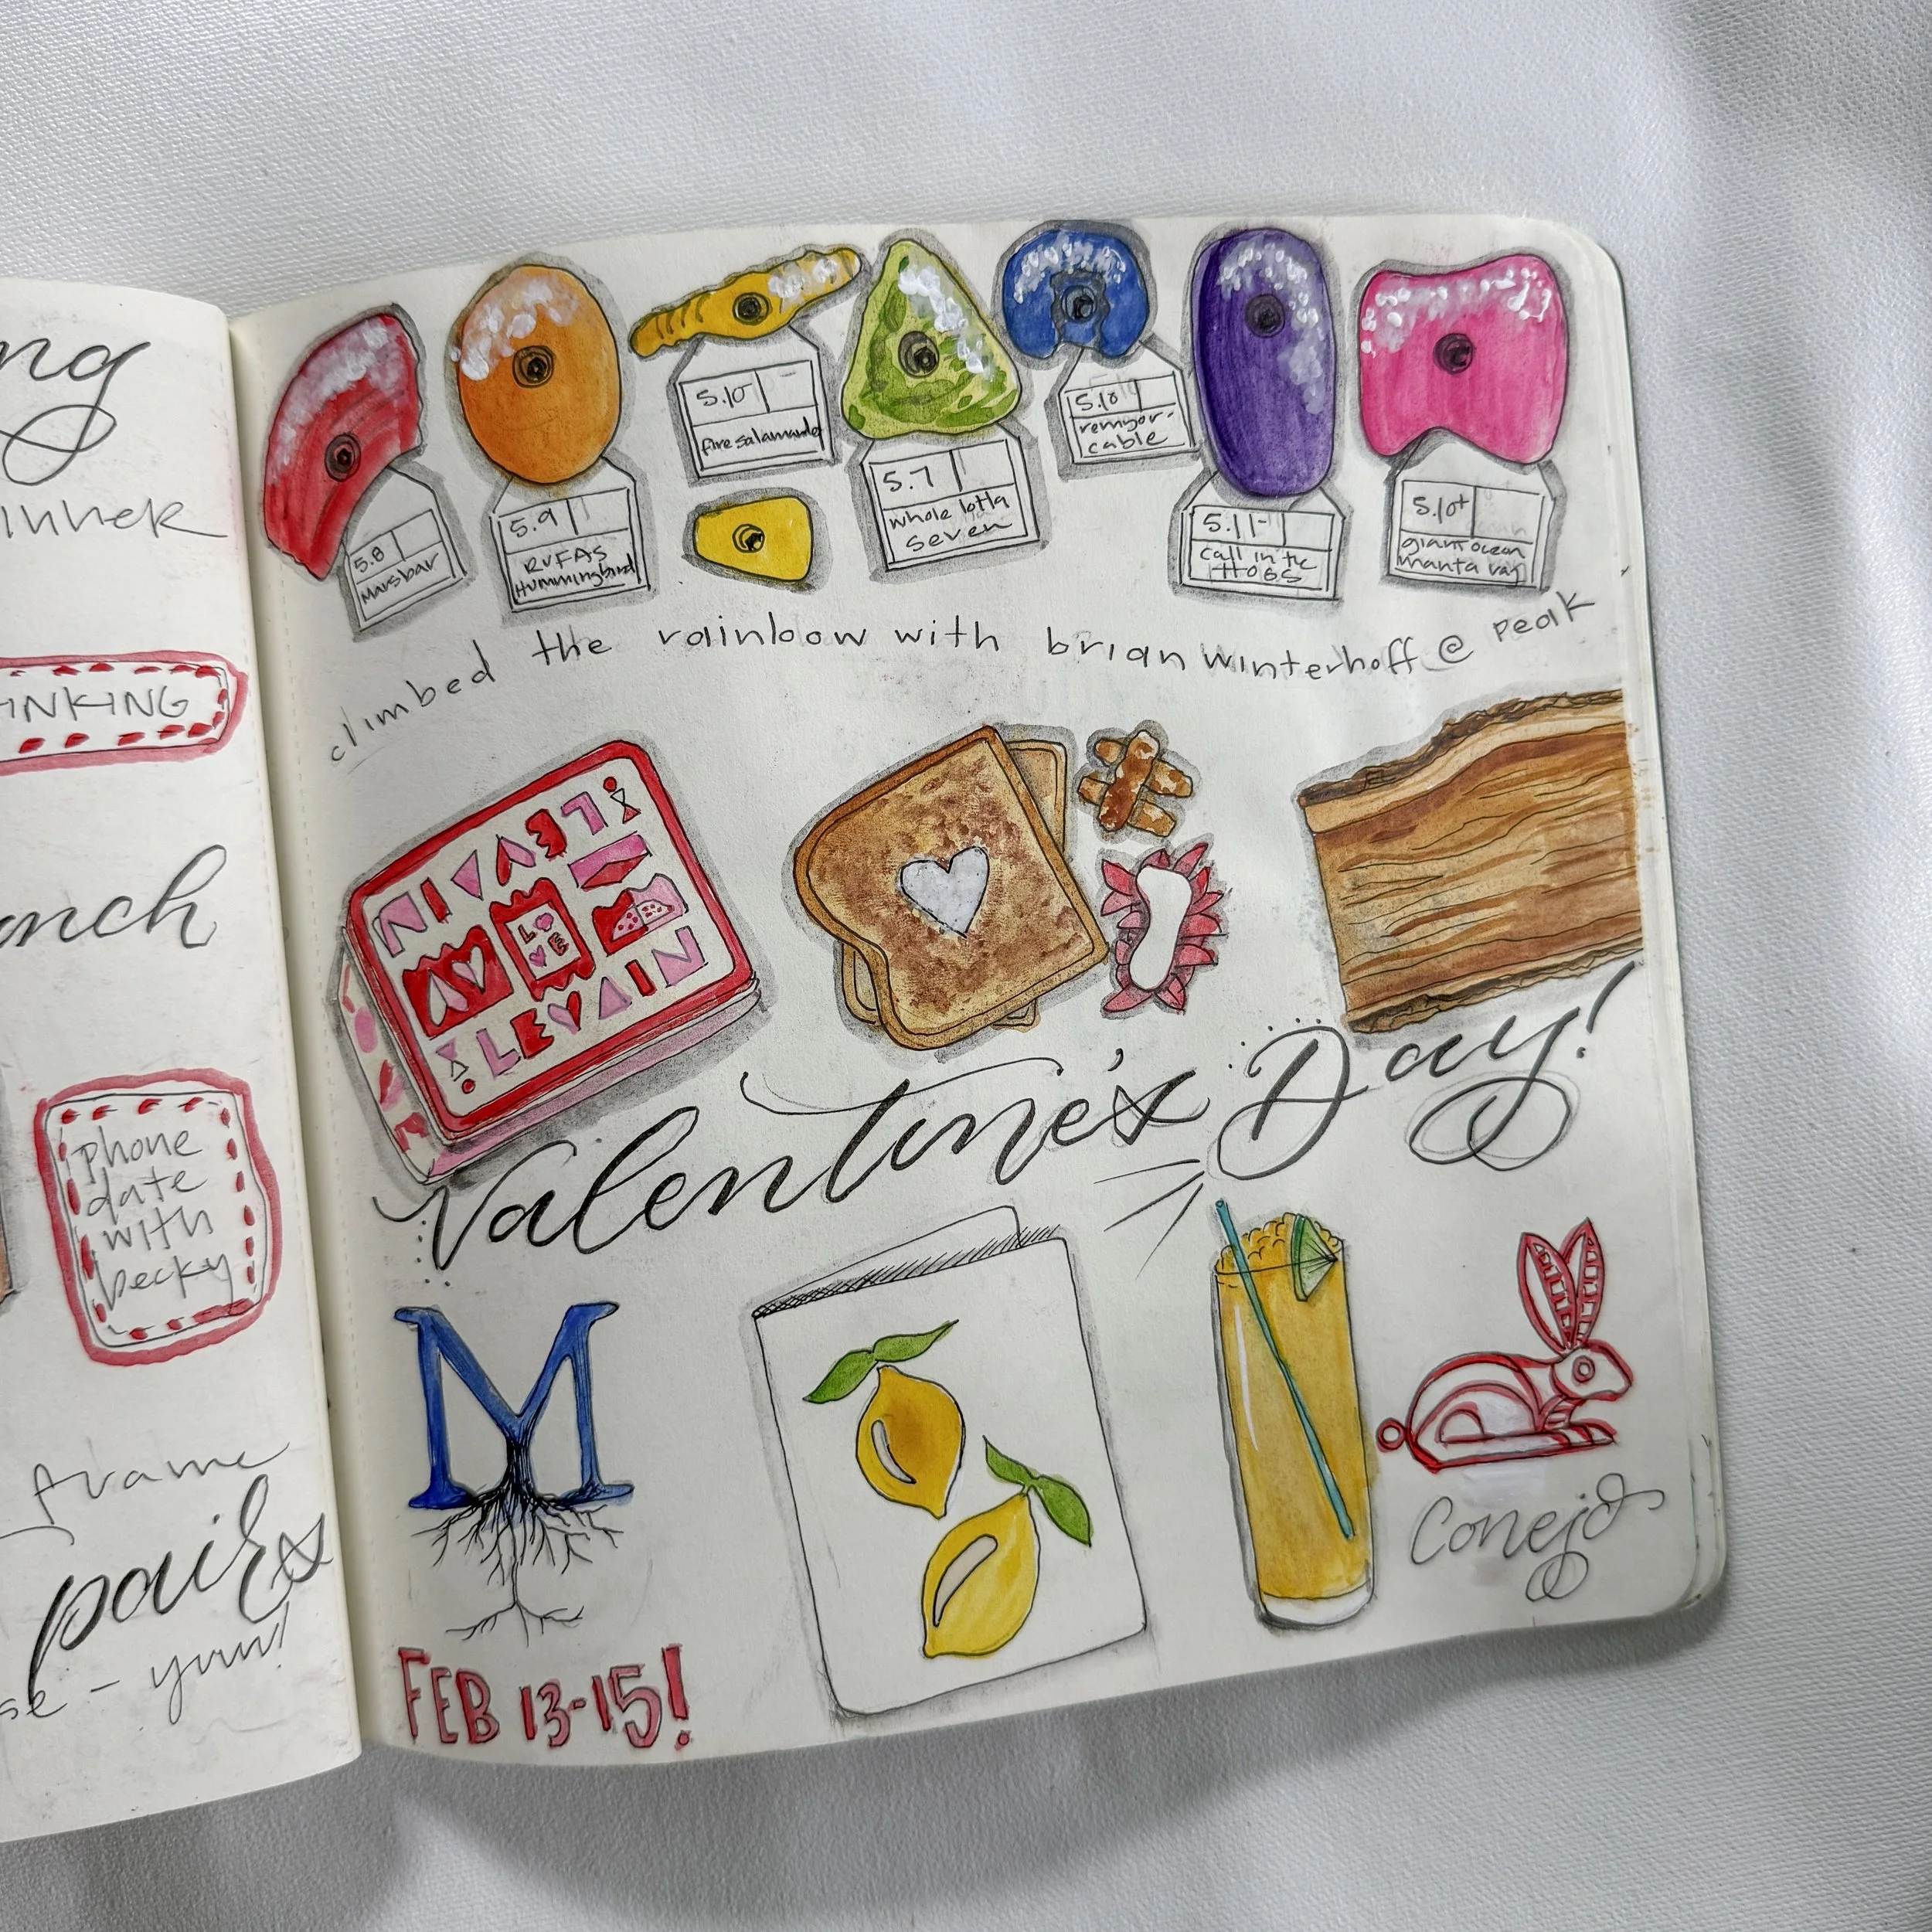 ng
INKING
nch
phone
date
with
becky
frame
pairs
se - yum!
5.8
Marsbar
5.9
RUFAS
Hummingbird
5.10-
fire salamander
5.7
whole lotta
seven
5.10
remyor-
cable
5.11-
call in the
HOGS
5.10+
giant ocean
manta ray
climbed the rainbow with brian winterhoff @ peak
LEVAIN
LOVE
LEVAIN
Valentine's Day!
M
FEB 13-15!
Conejo